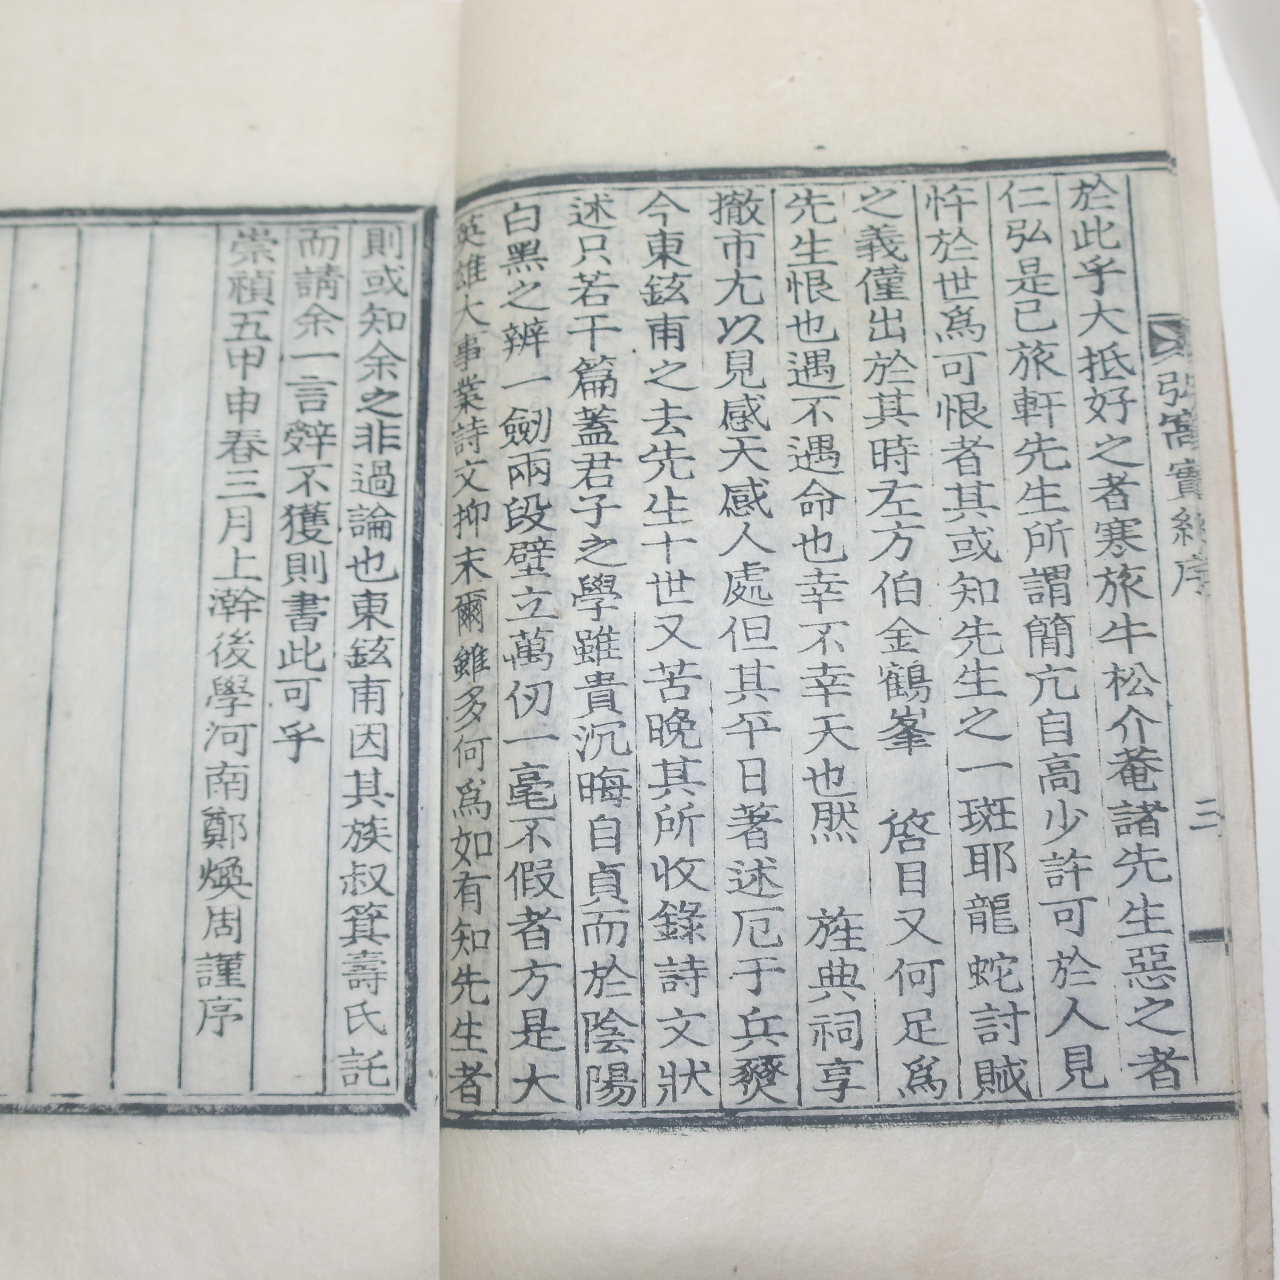 於此乎大抵好之者寒旅牛松介菴諸先生惡之者
仁弘是已旅軒先生所謂簡亢自高少許可於人見
忤於世爲可恨者其或知先生之一斑耶龍蛇討賊
之義僅出於其時左方伯金鶴峯 啓目又何足爲
先生恨也遇不遇命也幸不幸天也然 旌典祠享
撤市尢以見感天感人處但其平日著述厄于兵燹
今東鉉甫之去先生十世又苦晩其所收錄詩文狀
述只若干篇蓋君子之學雖貴沉晦自貞而於陰陽
白黑之辨一劒兩段壁立萬仞一毫不假者方是大
英雄大事業詩文抑末爾雖多何爲如有知先生者
實紀序
三
則或知余之非過論也東鉉甫因其族叔箕壽氏託
而請余一言辤不獲則書此可乎
崇禎五甲申春三月上澣後學河南鄭煥周謹序